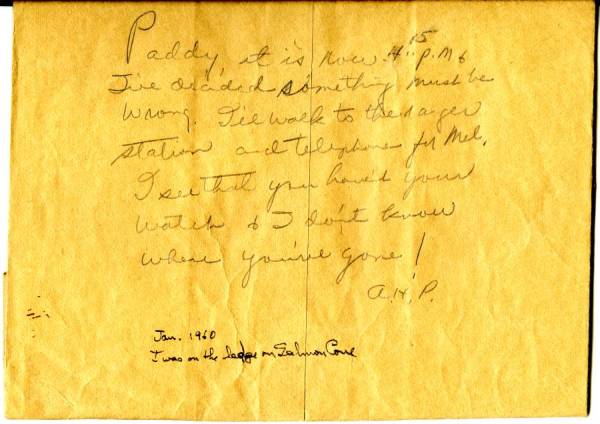 Paddy, it is now 4:15 p.m &
I've decided something must be
wrong. I'll walk to the ranger
station and telephone for Mel.
I see that you have'd your
watch & I don't know
where you've gone!
A.H.P.
Jan. 1960
I was on the ledge on Salmon Cove